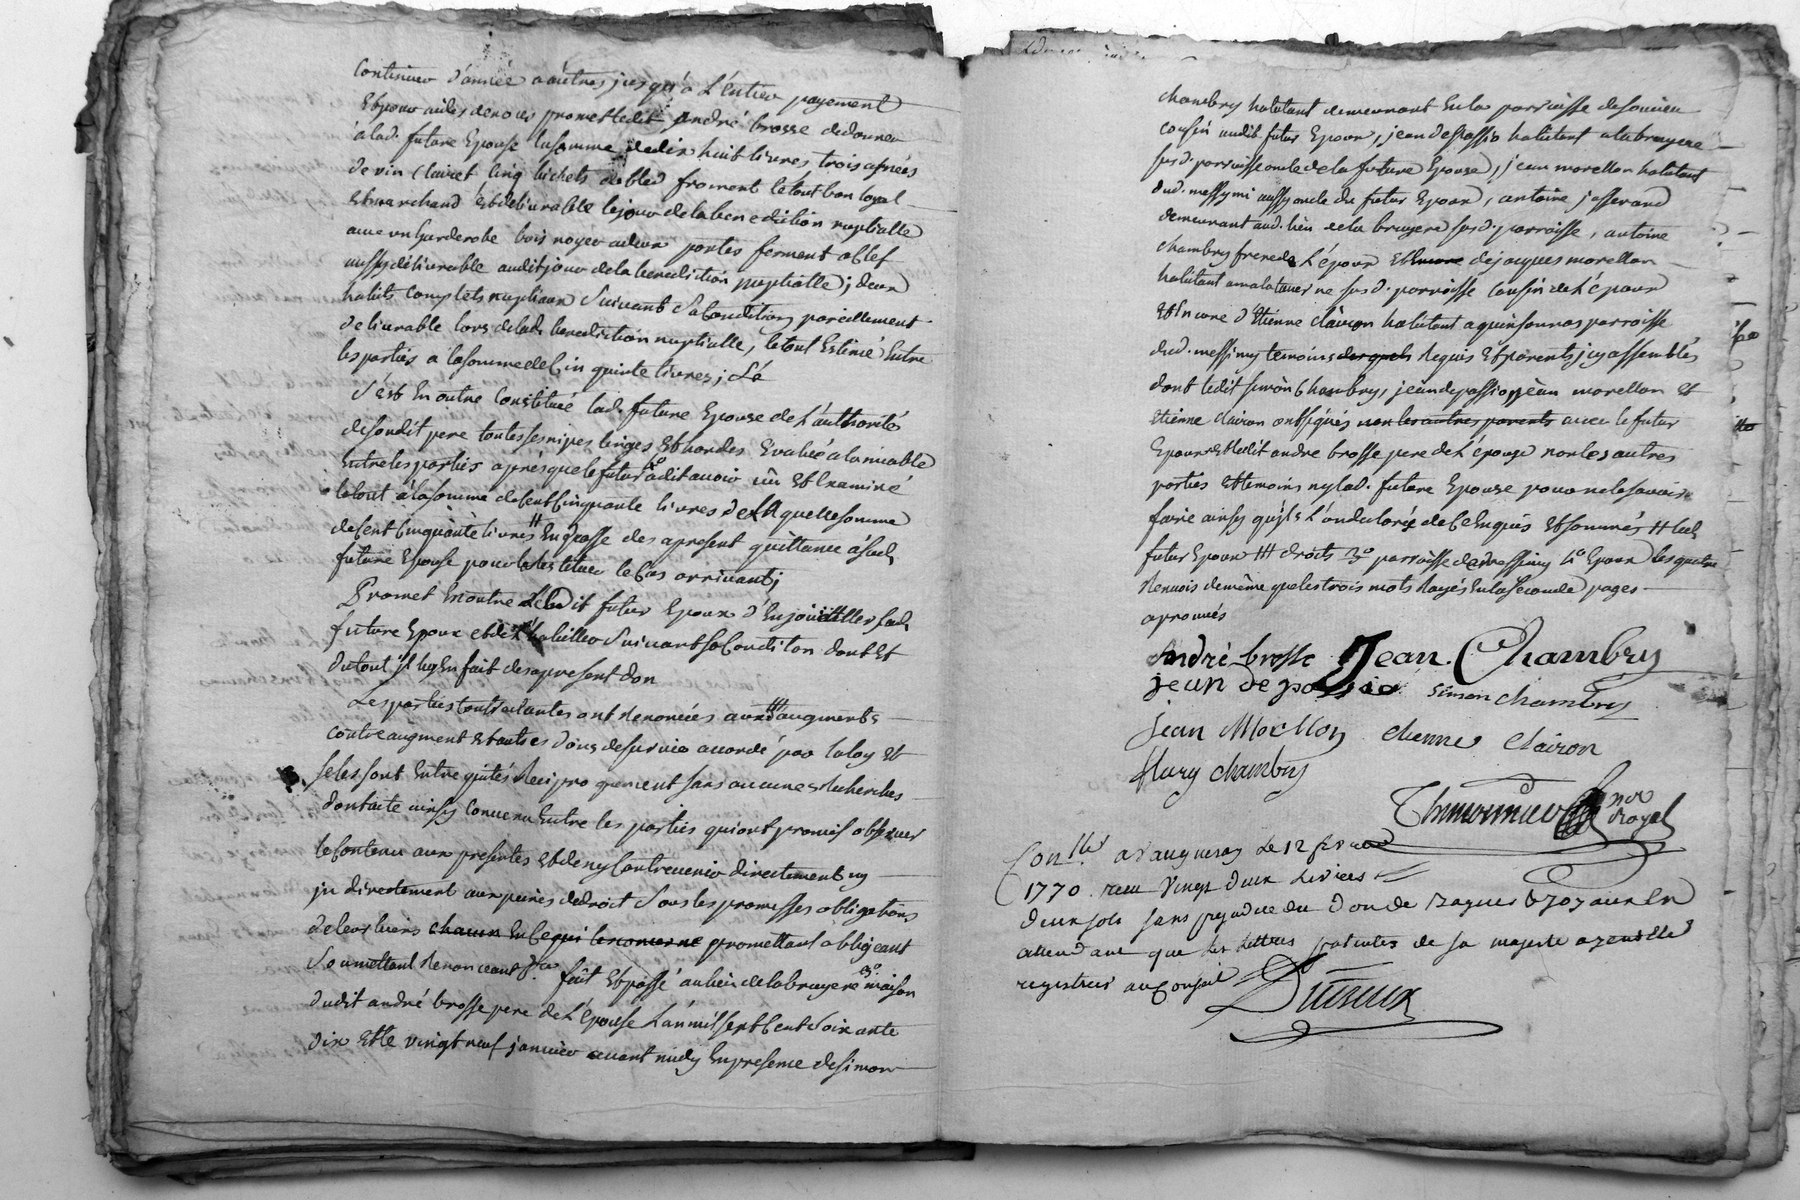 Continuer d'année a autres jusqu'à L'Entier payement
Et pour aides de noces promet ledit André brosse de donner
a lad. future Epouse la somme de dix huit livres, trois asnées
de vin Clairet Cinq bichets de bled froment le tout bon loyal
Et marchand Et delivrable le jour de la benediction nuptialle
avec un Garderobe bois noyer a deux portes fermant a Clef
aussy délivrable audit jour de la benediction nuptialle; deux
habits Complets nuptiaux Suivant Sa Condition pareillement
delivrable lors de lad. benediction nuptialle, le tout Estimé Entre
les parties a la somme de Cinquante livres;
S'est En outre Constitué lad. future Epouse de L'authorité
de sondit pere toutes ses nipes linges Et hardes Evalué a lamiable
Entre les parties après que le futur a dit avoir vû Et Examiné
le tout à la somme de Cent Cinquante livres de laquelle somme
de Cent Cinquante livres En passe des a present quittance à sad.
future Epouse pour la restituer le Cas arrivant;
Promet En outre Ledit futur Epoux d'Enjoüailler sad.
future Epoux et de L'habiller Suivant sa Condition dont Et
du tout il luy En fait des a present don
Les parties Contractantes ont renoncées aux augments
Contre augment Et autres dons de survie accordé par la loy Et
se les sont Entre quités Reciproquement sans aucunes Recherches
dont acte ainsy Convenu Entre les parties qui ont promis observer
le Contenu aux presentes Et de n'y Contrevenir directement ny
indirectement aux peines de droit Sous les promesses obligations
de leurs biens chacun En Ce qui les concerne promettant obligeant
Soumettant Renonceant fait Et passé au lieu de la bruyere maison
dudit andré brosse pere de L'épouse L'an mil sept Cent Soixante
dix Et le vingt neuf janvier avant midy En presence de simon
chambry habitant demeurant En la parroisse de soucieu
Cousin audit futur Epoux, jean depassio habitant a la bruyere
susd. parroisse oncle de la future Epouse, jean morellon habitant
dud. messymi aussy oncle du futur Epoux, antoine jasserand
demeurant aud. lieu de la bruyere susd. parroisse, antoine
Chambry frere de L'époux Et Encore de jacques morellon
habitant a malataverne susd. parroisse Cousin de L'époux
Et En core d'Etienne clairon habitant a quinsonnas parroisse
dud. messimy temoins desquels Requis Et parents icy assemblés
dont ledit simon Chambry, jean depassio, jean morellon Et
Etienne clairon ont signés non les autres parents avec le futur
Epoux Et ledit andré brosse pere de L'épouse non les autres
parties Et temoins ny lad. future Epouse pour ne le savoir
faire ainsy qu'ils L'ont declaré de Ce Enquis Et sommés # led.
futur Epoux ### droits 3º parroisse de messimy 4º Epoux les quatre
Renvois de même que les trois mots Rayés En la seconde pages
aprouvés
André brosse Jean Chambry
jean de passio simon chambry
Jean Morellon etienne clairon
fleury chambry
nore
royal
Conllé a vaugneray Le 12 fevrier
1770. receu Vingt deux Livres
deux sols sans prejudice du don de bagues & joyaux En
attendant que Les Lettres patentes de sa majesté ayent Eté
registrées au Conseil